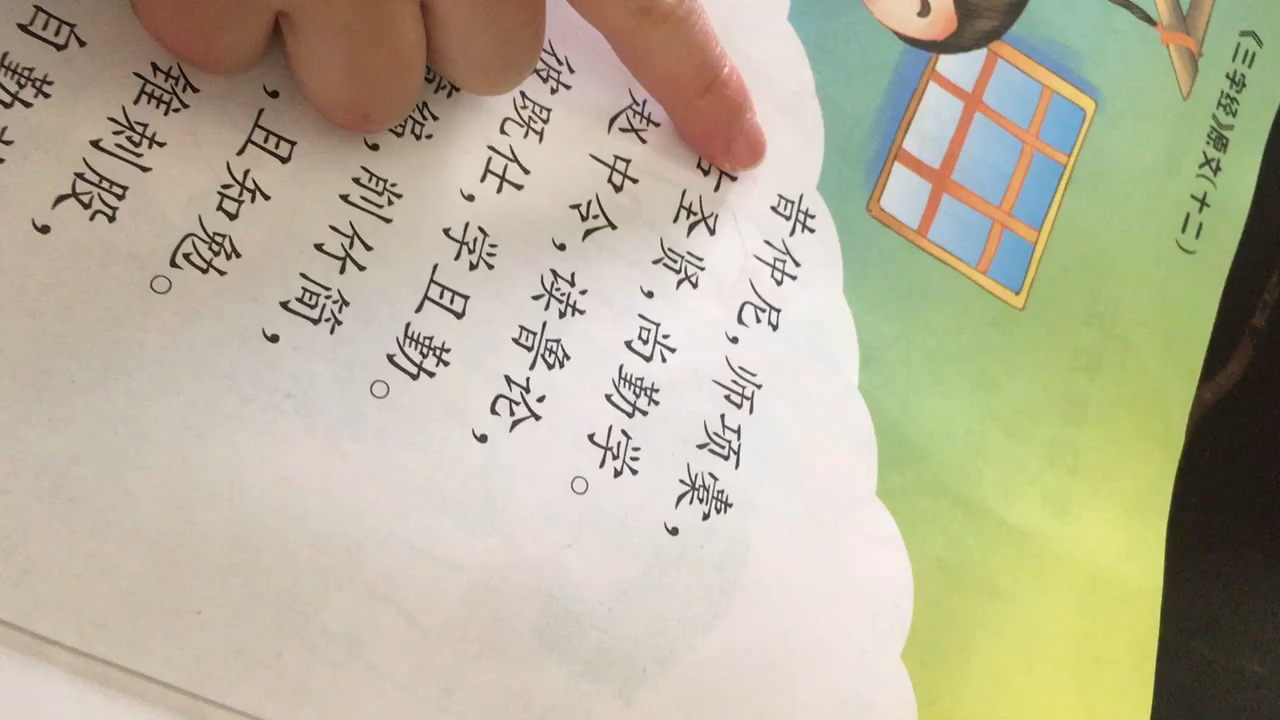 《三字经》原文(十二)
昔仲尼,师项橐,
古圣贤,尚勤学。
赵中令,读鲁论,
彼既仕,学且勤。
编,削竹简,
,且知勉。
锥刺股,
自勤